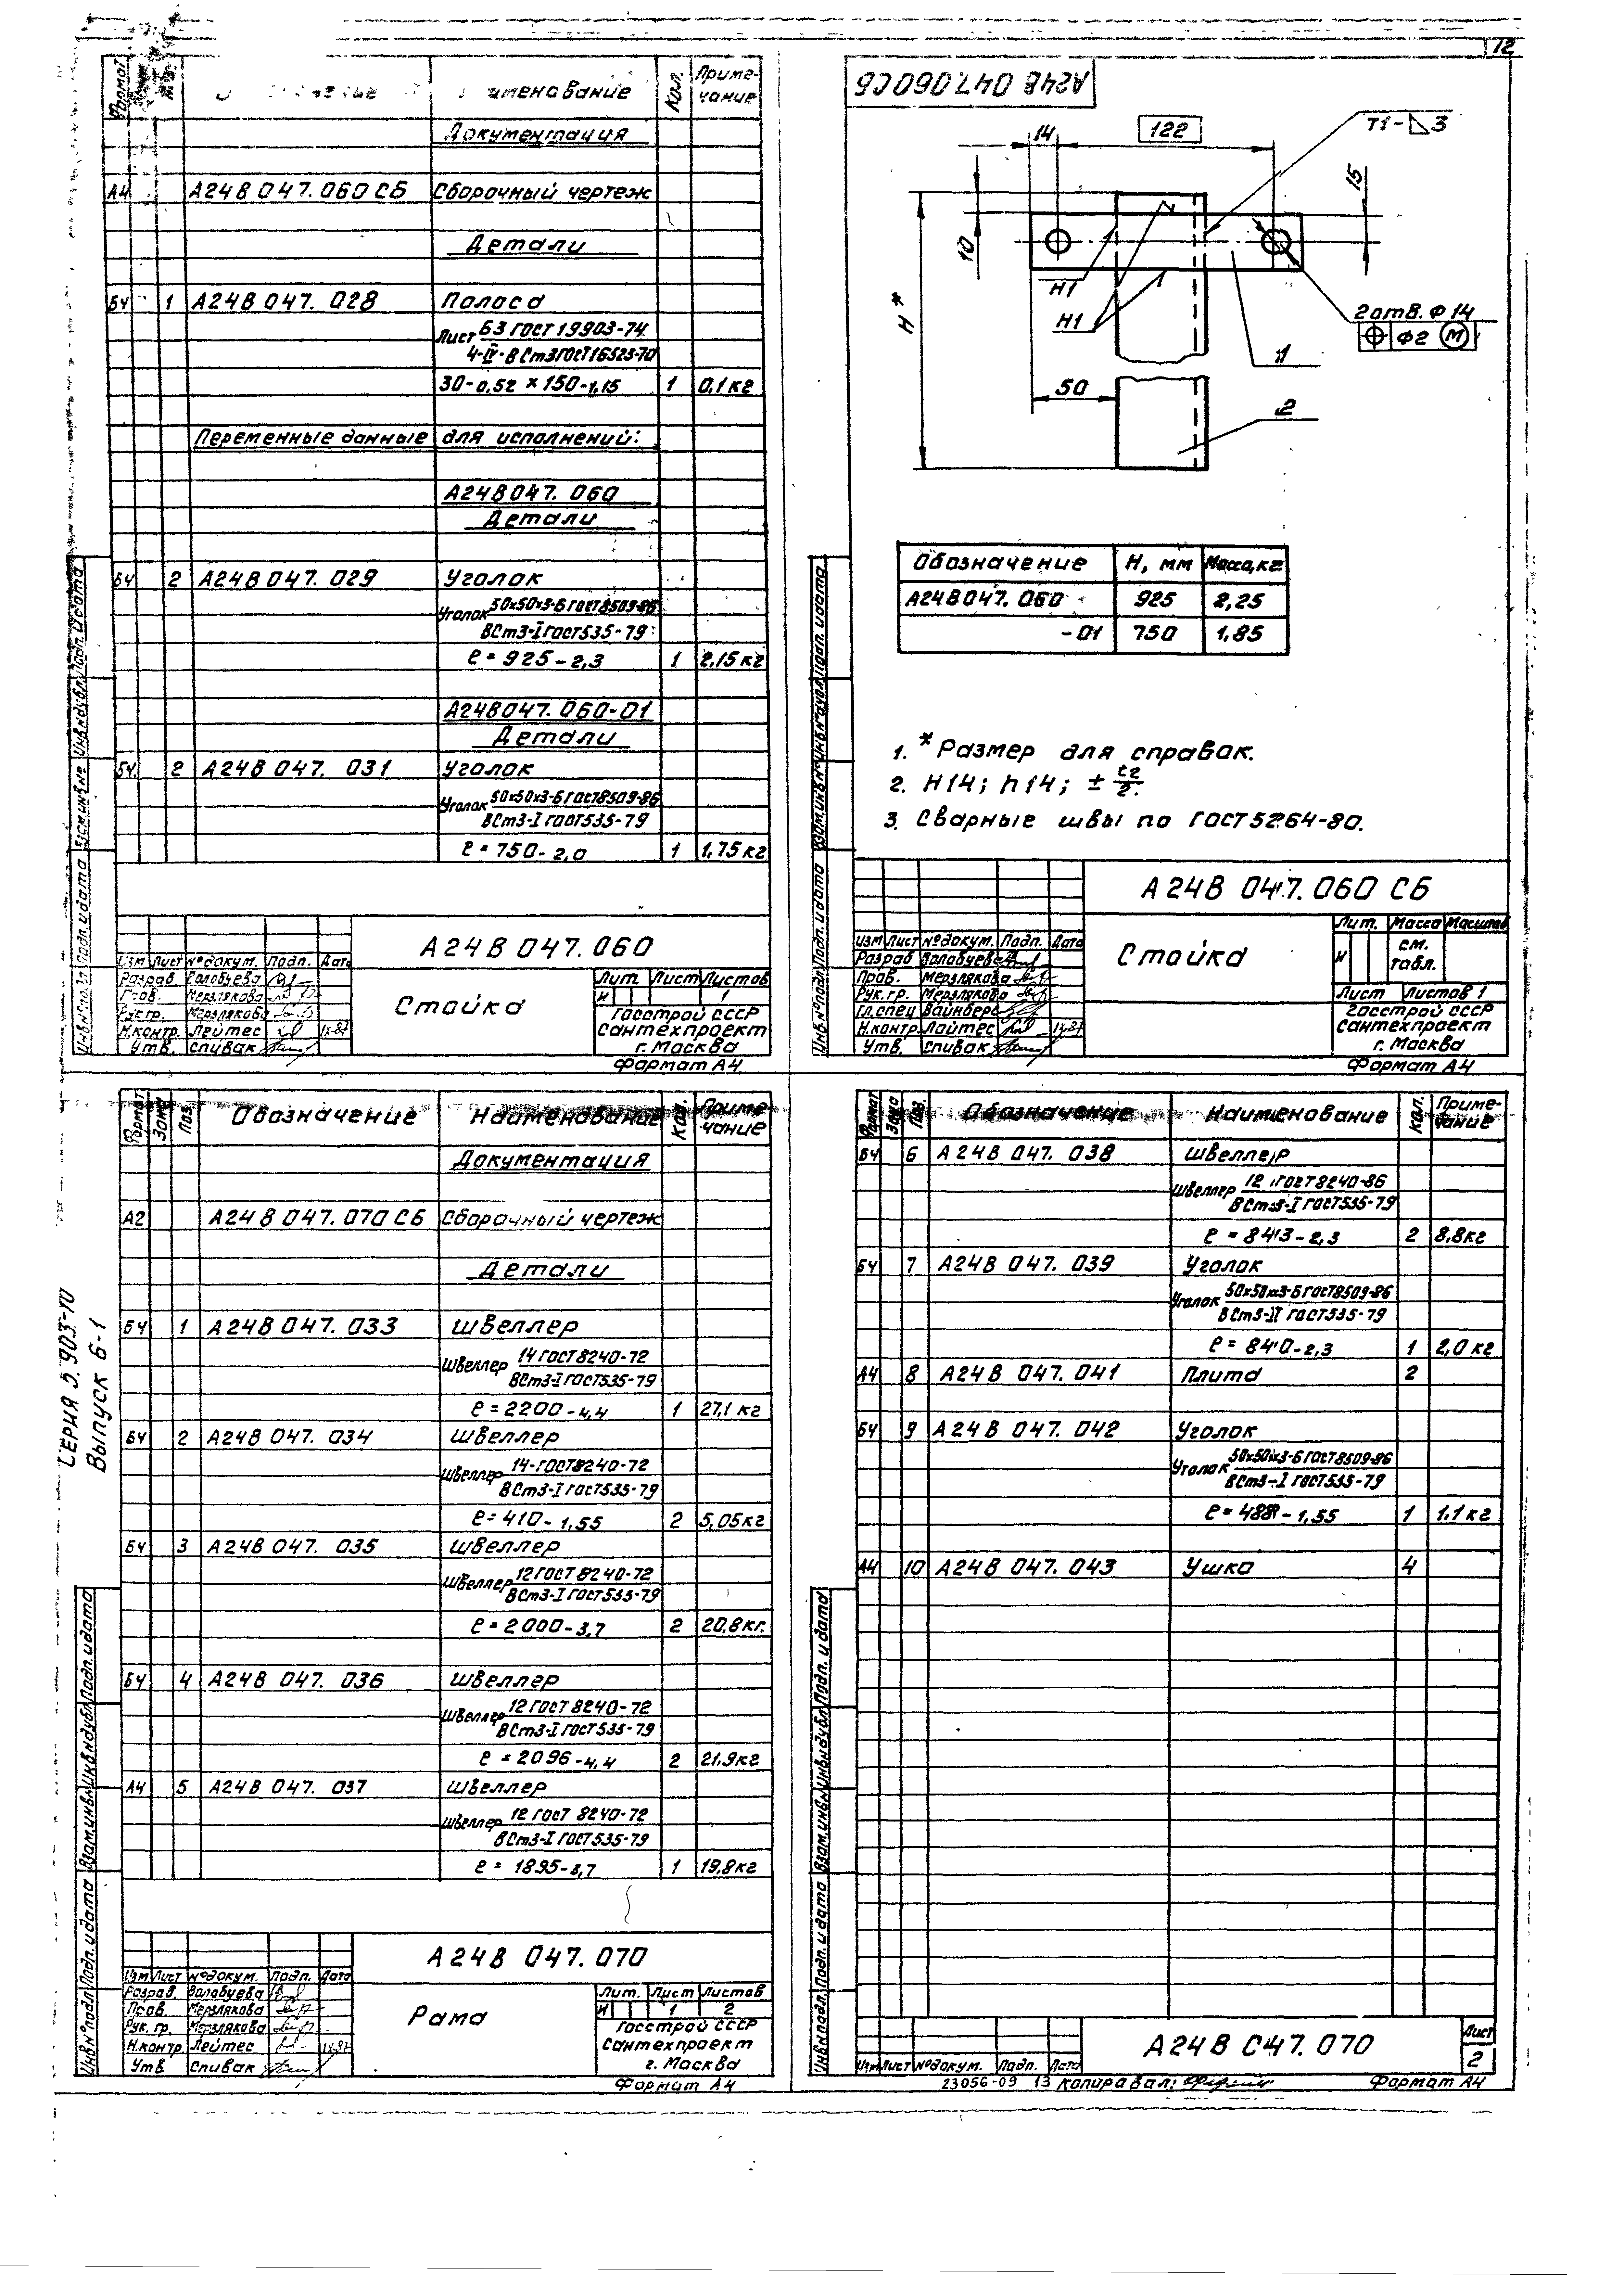 12
Формат
Наименование
Кол.
Приме-
чание
Документация
А4 А24В 047.060 СБ Сборочный чертеж
Детали
БЧ 1 А24В 047. 028 Полоса
Лист Б3 ГОСТ 19903-74
4-IV-ВСт3 ГОСТ 16523-70
30-0,52 × 150-1,15 1 0,1 кг
Переменные данные для исполнений:
А24В 047. 060
Детали
БЧ 2 А24В 047. 029 Уголок
Уголок 50х50х3-Б ГОСТ 8509-86
ВСт3-I ГОСТ 535-79
ℓ = 925-2,3 1 2,15 кг
А24В 047. 060-01
Детали
БЧ 2 А24В 047. 031 Уголок
Уголок 50х50х3-Б ГОСТ 8509-86
ВСт3-I ГОСТ 535-79
ℓ = 750-2,0 1 1,75 кг
А24В 047.060
Изм Лист № докум. Подп. Дата
Разраб. Волобуева
Пров. Мерзлякова
Рук.гр. Мерзлякова
Н.контр. Лейтес IX-87
Утв. Спивак
Стойка
Лит. Лист Листов
И 1
Госстрой СССР
Сантехпроект
г. Москва
Формат А4
Инв.№ подл. Подп. и дата Взам.инв.№ Инв.№ дубл. Подп. и дата
А24В 047.060СБ
14
122
Т1-◺3
15
10
Н*
Н1
Н1
2 отв. Ф 14
⌖ Ф2 Ⓜ
1
50
2
Обозначение Н, мм Масса, кг
А24В 047. 060 925 2,25
-01 750 1,85
1. * Размер для справок.
2. Н14; h14; ± t2/2.
3. Сварные швы по ГОСТ 5264-80.
А24В 047.060 СБ
Изм Лист № докум. Подп. Дата
Разраб Волобуева
Пров. Мерзлякова
Рук.гр. Мерзлякова
Гл.спец Вайнберг
Н.контр. Лейтес IX-87
Утв. Спивак
Стойка
Лит. Масса Масштаб
И см.
табл.
Лист Листов 1
Госстрой СССР
Сантехпроект
г. Москва
Формат А4
Инв.№ подл Подп. и дата Взам.инв.№ Инв.№ дубл. Подп. и дата
СЕРИЯ 5.903-10
Выпуск 6-1
Формат Зона Поз. Обозначение Наименование Кол. Приме-
чание
Документация
А2 А24В 047.070 СБ Сборочный чертеж
Детали
БЧ 1 А24В 047. 033 Швеллер
Швеллер 14 ГОСТ 8240-72
ВСт3-I ГОСТ 535-79
ℓ = 2200-4,4 1 27,1 кг
БЧ 2 А24В 047. 034 Швеллер
Швеллер 14-ГОСТ 8240-72
ВСт3-I ГОСТ 535-79
ℓ = 410-1,55 2 5,05 кг
БЧ 3 А24В 047. 035 Швеллер
Швеллер 12 ГОСТ 8240-72
ВСт3-I ГОСТ 535-79
ℓ = 2000-3,7 2 20,8 кг.
БЧ 4 А24В 047. 036 Швеллер
Швеллер 12 ГОСТ 8240-72
ВСт3-I ГОСТ 535-79
ℓ = 2096-4,4 2 21,9 кг
А4 5 А24В 047. 037 Швеллер
Швеллер 12 ГОСТ 8240-72
ВСт3-I ГОСТ 535-79
ℓ = 1895-3,7 1 19,8 кг
А24В 047.070
Изм Лист № докум. Подп. Дата
Разраб. Волобуева
Пров. Мерзлякова
Рук. гр. Мерзлякова
Н.контр. Лейтес IX-87
Утв. Спивак
Рама
Лит. Лист Листов
И 1 2
Госстрой СССР
Сантехпроект
г. Москва
Формат А4
Инв.№ подл Подп. и дата Взам.инв.№ Инв.№ дубл Подп. и дата
Формат Зона Поз. Обозначение Наименование Кол. Приме-
чание
БЧ 6 А24В 047. 038 Швеллер
Швеллер 12 ГОСТ 8240-86
ВСт3-I ГОСТ 535-79
ℓ = 843-2,3 2 8,8 кг
БЧ 7 А24В 047. 039 Уголок
Уголок 50х50х3-Б ГОСТ 8509-86
ВСт3-II ГОСТ 535-79
ℓ = 840-2,3 1 2,0 кг
А4 8 А24В 047. 041 Плита 2
БЧ 9 А24В 047. 042 Уголок
Уголок 50х50х3-Б ГОСТ 8509-86
ВСт3-I ГОСТ 535-79
ℓ = 488-1,55 1 1,1 кг
А4 10 А24В 047. 043 Ушко 4
А24В 047.070
Лист
2
Изм Лист № докум. Подп. Дата
23056-09 13 Копировал: Формат А4
Инв.№ подл. Подп. и дата Взам.инв.№ Инв.№ дубл Подп. и дата